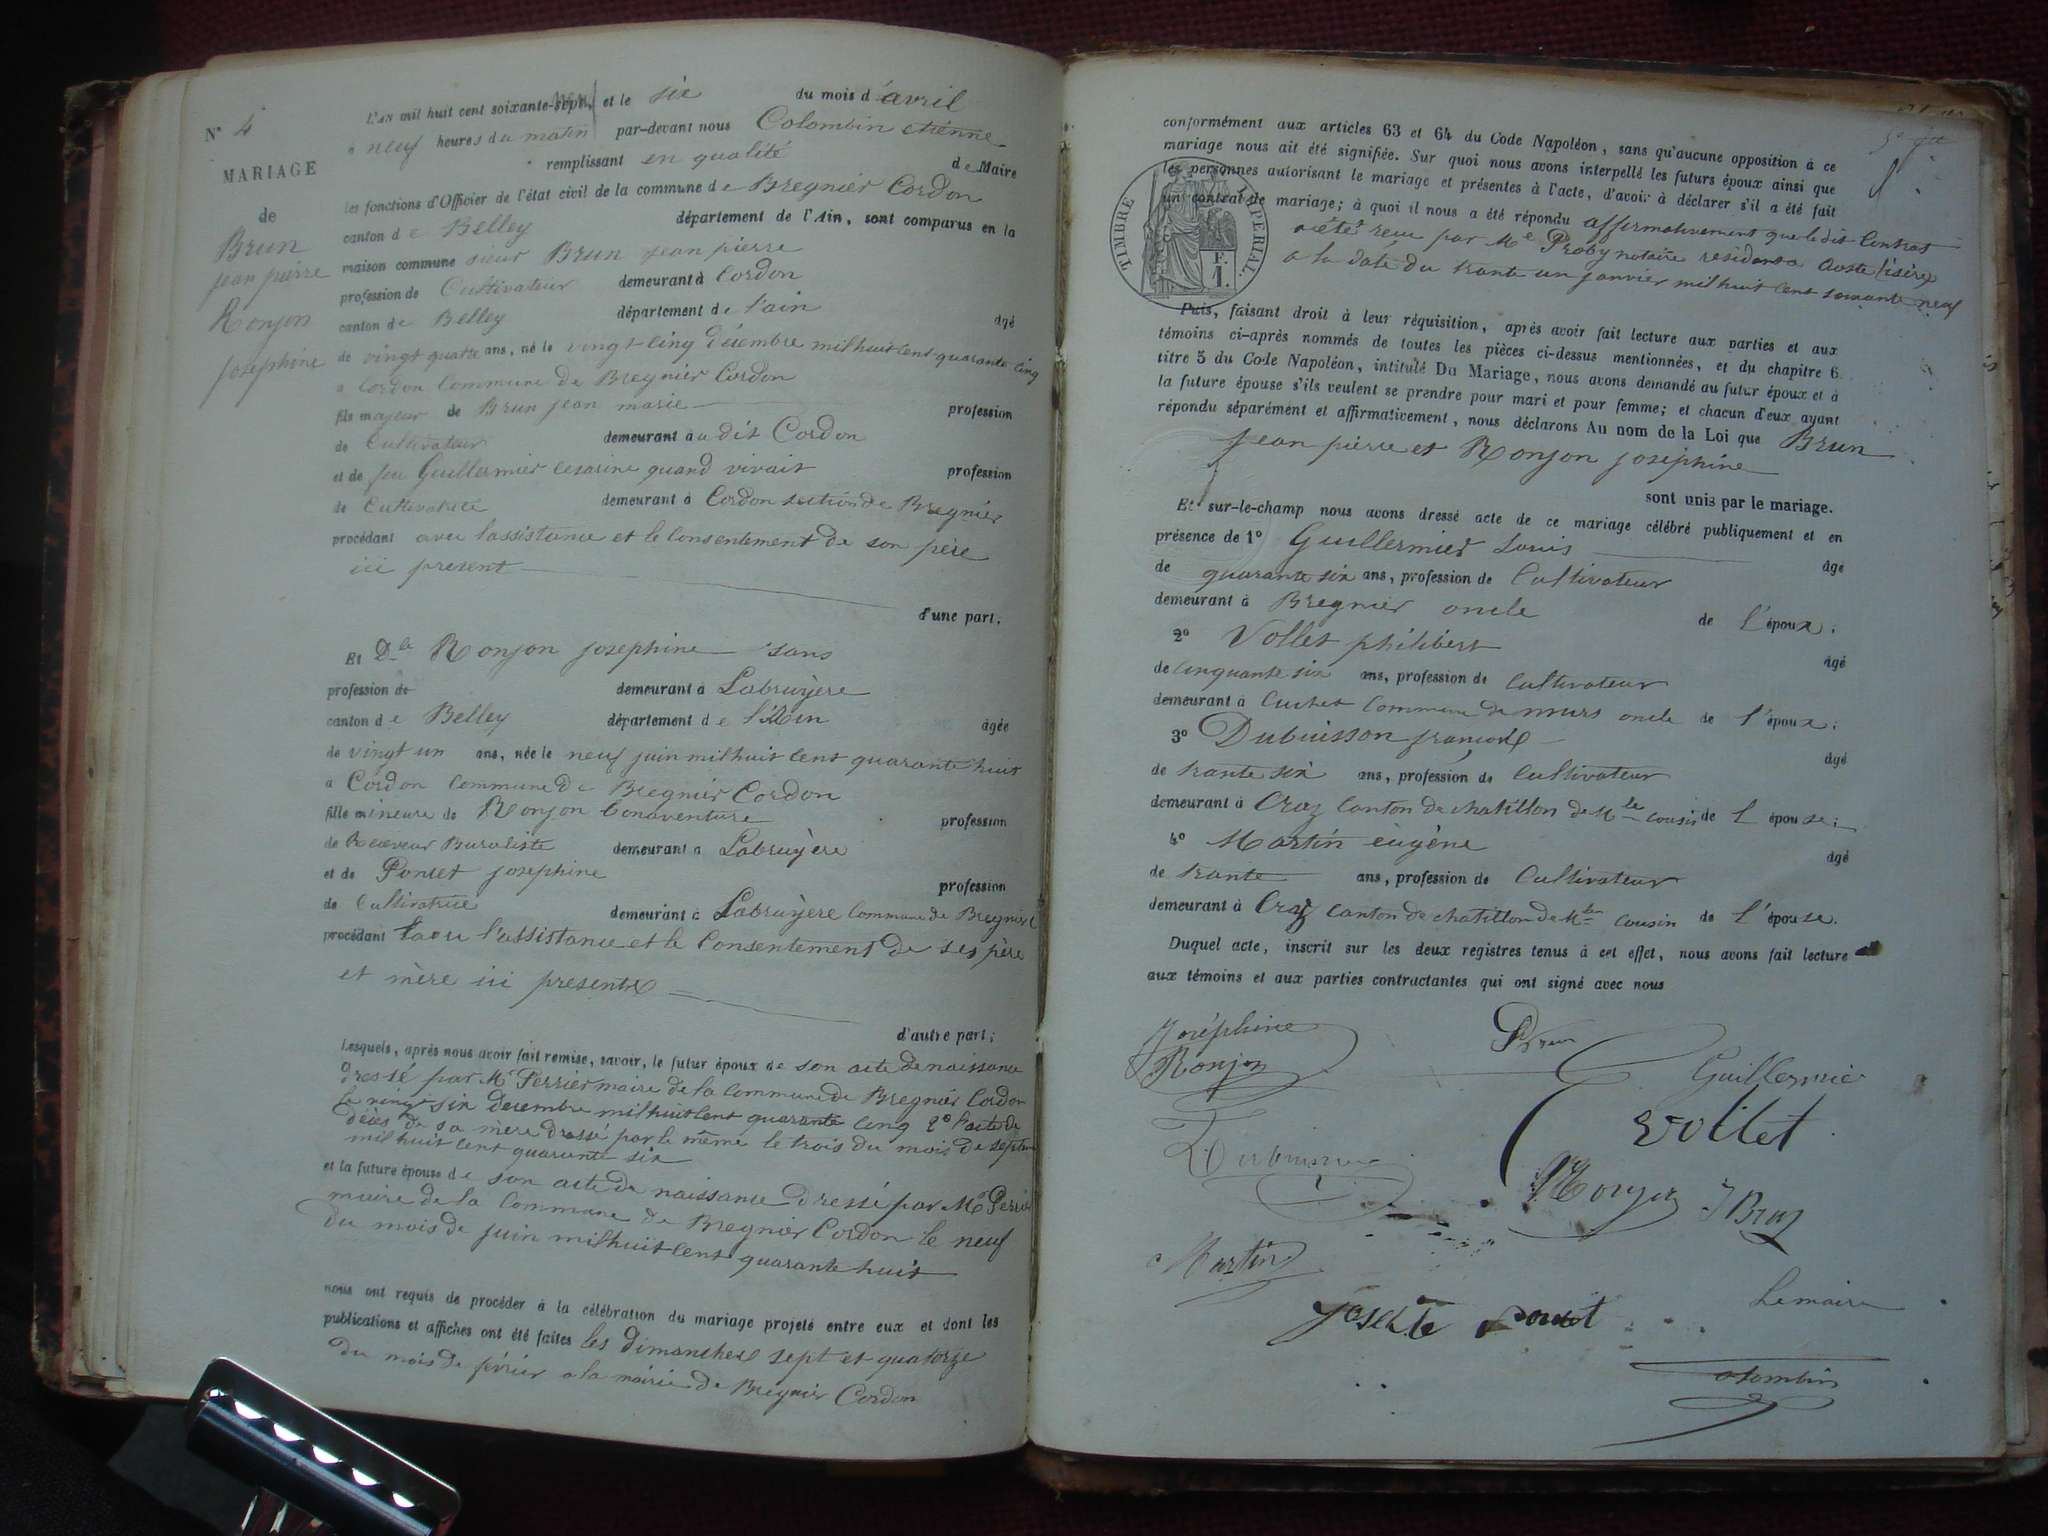 N° 4
MARIAGE
de
Brun
jean pierre
Ronjon
josephine
L'an mil huit cent soixante-sept, neuf et le six du mois d'avril
a neuf heures du matin par-devant nous Colombin etienne
remplissant en qualité de Maire
les fonctions d'Officier de l'état civil de la commune de Bregnier Cordon
canton de Belley département de l'Ain, sont comparus en la
maison commune sieur Brun jean pierre
profession de Cultivateur demeurant à Cordon
canton de Belley département de l'ain âgé
de vingt quatre ans, né le vingt cinq décembre mil huit cent quarante cinq
a Cordon Commune de Bregnier Cordon
fils majeur de Brun jean marie profession
de Cultivateur demeurant au dit Cordon
et de feu Guillermier Cesarine quand vivait profession
de Cultivatrice demeurant à Cordon section de Bregnier
procédant avec lassistance et le Consentement de son père
ici present
d'une part;
Et Dlle Ronjon josephine sans
profession de demeurant à Labruyère
canton de Belley département de l'Ain âgée
de vingt un ans, née le neuf juin mil huit cent quarante huit
a Cordon Commune de Bregnier Cordon
fille mineure de Ronjon bonaventure profession
de Receveur Buraliste demeurant a Labruyère
et de Poncet josephine profession
de Cultivatrice demeurant à Labruyère Commune de Bregnier
procédant avec l'assistance et le Consentement de ses père
et mère ici presents
d'autre part;
Lesquels, après nous avoir fait remise, savoir, le futur époux de son acte de naissance
dressé par Mr Perrier maire de la Commune de Bregnier Cordon
le vingt six decembre mil huit cent quarante cinq 2° l'acte de
décès de sa mère dressé par le même le trois du mois de septem
mil huit cent quarante six
et la future épouse de son acte de naissance dressé par Mr Perrier
maire de la Commune de Bregnier Cordon le neuf
du mois de juin mil huit cent quarante huit
nous ont requis de procéder à la célébration du mariage projeté entre eux et dont les
publications et affiches ont été faites les dimanches sept et quatorze
du mois de février a la mairie de Bregnier Cordon
conformément aux articles 63 et 64 du Code Napoléon, sans qu'aucune opposition à ce
mariage nous ait été signifiée. Sur quoi nous avons interpellé les futurs époux ainsi que
les personnes autorisant le mariage et présentes à l'acte, d'avoir à déclarer s'il a été fait
un contrat de mariage; à quoi il nous a été répondu affirmativement que le dit Contrat
a été recu par Me Proby notaire résidant a Aoste (isère)
a la date du trante un janvier mil huit cent soixante neuf
TIMBRE IMPERIAL.
F.
1.
Puis, faisant droit à leur réquisition, après avoir fait lecture aux parties et aux
témoins ci-après nommés de toutes les pièces ci-dessus mentionnées, et du chapitre 6
titre 5 du Code Napoléon, intitulé Du Mariage, nous avons demandé au futur époux et à
la future épouse s'ils veulent se prendre pour mari et pour femme; et chacun d'eux ayant
répondu séparément et affirmativement, nous déclarons Au nom de la Loi que Brun
jean pierre et Ronjon josephine
sont unis par le mariage.
Et sur-le-champ nous avons dressé acte de ce mariage célébré publiquement et en
présence de 1° Guillermier Louis âgé
de quarante six ans, profession de Cultivateur
demeurant à Bregnier oncle de l'époux;
2° Vollet philibert âgé
de cinquante six ans, profession de Cultivateur
demeurant à Cuchet Commune de murs oncle de l'époux;
3° Dubuisson françois âgé
de trante six ans, profession de Cultivateur
demeurant à Craz Canton de chatillon de Mlle cousin de l'épouse;
4° Martin eugène âgé
de trante ans, profession de Cultivateur
demeurant à Craz canton de chatillon de Mlle cousin de l'épouse.
Duquel acte, inscrit sur les deux registres tenus à cet effet, nous avons fait lecture
aux témoins et aux parties contractantes qui ont signé avec nous
Joséphine
Ronjon
Brun
Guillermier
Vollet
Dubuisson
Ronjon
J Brun
Martin
Josephte Poncet
Le maire
Colombin